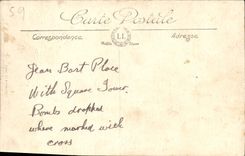 59
Carte Postale
Correspondance
LL
Adresse
Jean Bart Place
With Square Tower.
Bombs dropped
where marked with
cross